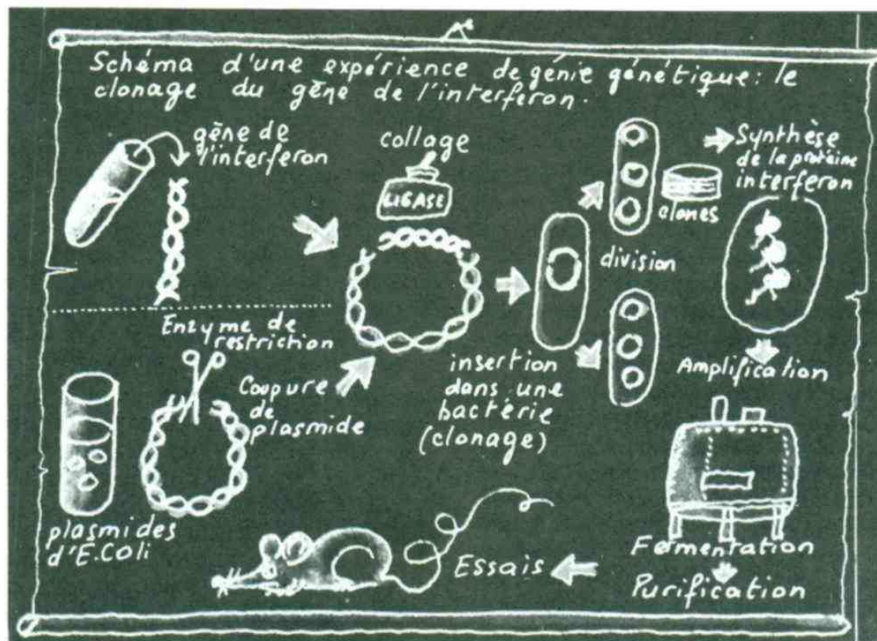 Schéma d'une expérience de génie génétique: le
clonage du gène de l'interferon.
gène de
l'interferon
collage
LIGASE
Synthèse
de la protéine
interferon
clones
division
Enzyme de
restriction
Coupure
de
plasmide
insertion
dans une
bactérie
(clonage)
Amplification
plasmides
d'E.COli
Essais
Fermentation
Purification